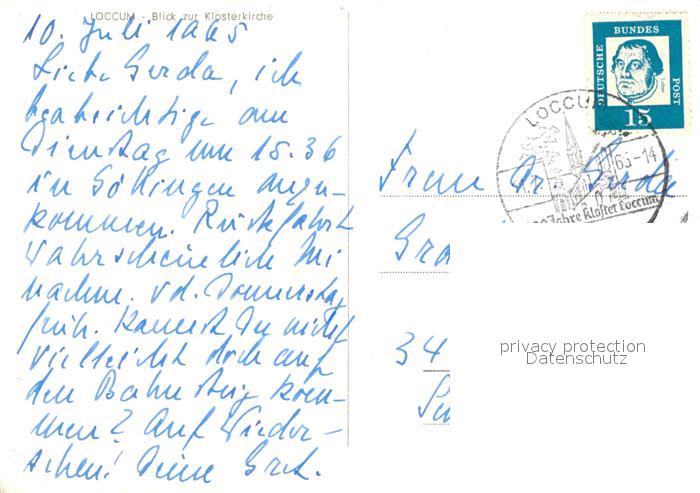 LOCCUM - Blick zur Klosterkirche
10. Juli 1965
Liebe Gerda, ich
beabsichtige am
Dienstag um 15.36
in Göttingen anzu-
kommen. Rückfahrt
wahrscheinlich Mi
nachm. od. Donnerstag
früh. Kannst Du nicht
vielleicht doch auf
den Bahnsteig kom-
men? Auf Wieder-
sehen! Deine Gret.
DEUTSCHE BUNDES POST
Luther
15
LOCCUM
65-14
Jahre Kloster Loccum
Frau Dr. Gerda
Gra
34
privacy protection
Datenschutz